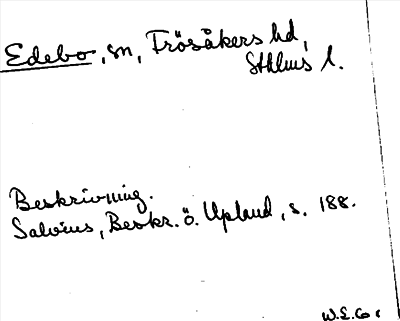 Edebo, sn, Frösåkers hd,
Sthlms l.
Beskrivning.
Salvius, Beskr. ö. Upland, s. 188.